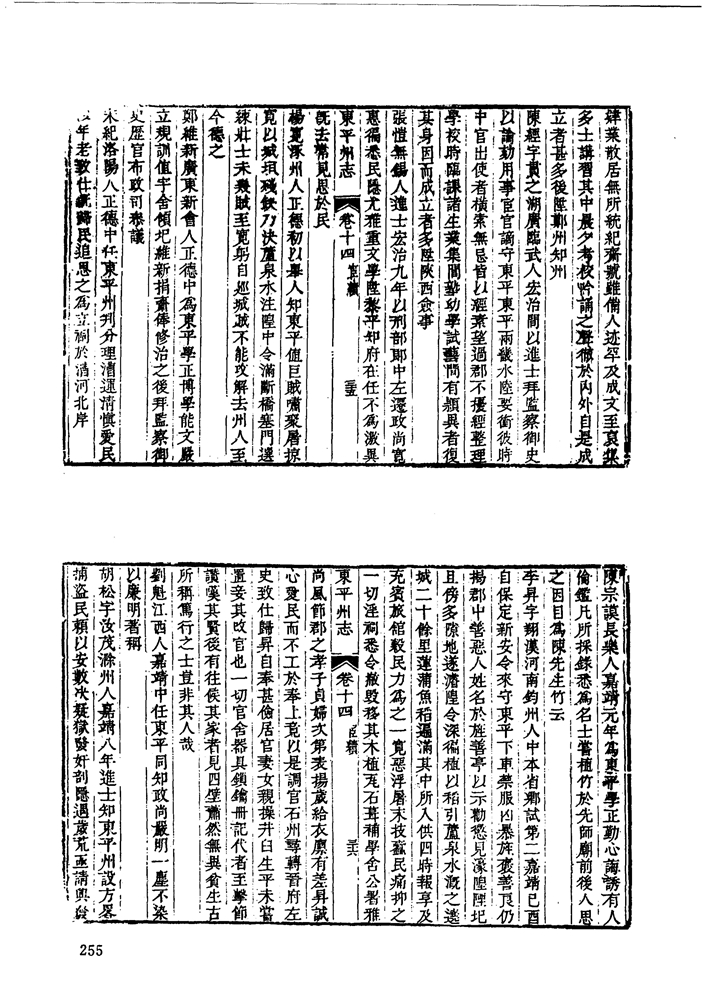 肄業散居無所統紀齋號雖備人迹罕及成文至裒集
多士講習其中晨夕考校吟誦之聲徹於內外自是成
立者甚多後陞鄭州知州
陳經字貫之湖廣臨武人宏治間以進士拜監察御史
以論勳用事宦官謫守東平東平兩畿水陸要衝彼時
中官出使者橫索無忌皆以經素望過郡不擾經整理
學校時臨課諸生業集間勸幼學試藝間有穎異者復
其身因而成立者多陞陝西僉事
張愷無錫人進士宏治九年以刑部郎中左遷政尚寬
惠徧悉民隱尤雅重文學陞黎平知府在任不為激異
東平州志 卷十四 宦績 三五
既去常見思於民
楊寬涿州人正德初以舉人知東平值巨賊嘯聚屠掠
寬以城垣殘缺乃決蘆泉水注隍中令滿斷橋塞門選
練壯士未幾賊至寬躬自巡城賊不能攻解去州人至
今德之
鄭維新廣東新會人正德中為東平學正博學能文嚴
立規訓值宇舍傾圮維新捐齋俸修治之後拜監察御
史歷官布政司參議
宋紀洛陽人正德中任東平州判分理漕運清慎愛民
年老致仕既歸民追思之為立祠於漕河北岸
陳宗謨長樂人嘉靖元年為東平學正勤心誨誘有人
倫鑑凡所採錄悉為名士嘗植竹於先師廟前後人思
之因目為陳先生竹云
李昇字翔漢河南鈞州人中本省鄉試第二嘉靖己酉
自保定新安令來守東平下車禁服凶暴旌褒善良仍
揭郡中善惡人姓名於旌善亭以示勸懲見濠隍陻圮
且傍多隙地遂濬隍令深徧植以稻引蘆泉水溉之遶
城二十餘里蓮蒲魚稻遍滿其中所入供四時報享及
充賓旅館穀民力為之一寬惡浮屠末技蠧民痛抑之
一切淫祠悉令撤毀移其木植瓦石葺補學舍公署雅
東平州志 卷十四 宦績 三六
尚風節郡之孝子貞婦次第表揚歲給衣廪有差昇誠
心愛民而不工於奉上竟以是調官石州尋轉晉府左
史致仕歸昇自奉甚儉居官妻女親操井臼生平未嘗
置妾其改官也一切官舍器具鎖鑰冊記代者至擊節
讚嘆其賢後有往侯其家者見四壁蕭然無異貧生古
所稱篤行之士豈非其人哉
劉魁江西人嘉靖中任東平同知政尚嚴明一塵不染
以廉明著稱
胡松字汝茂滁州人嘉靖八年進士知東平州設方畧
捕盜民賴以安數決疑獄發奸剖隱遇歲荒亟請興發
255